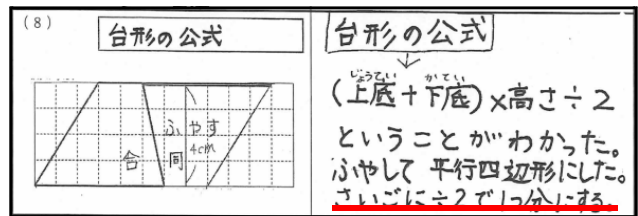 (8)
台形の公式
ふやす
4cm
合
同
台形の公式
(上底+下底)×高さ÷2
じょうてい
かてい
ということがわかった。
ふやして 平行四辺形にした。
さいごに÷2で1つ分にする。